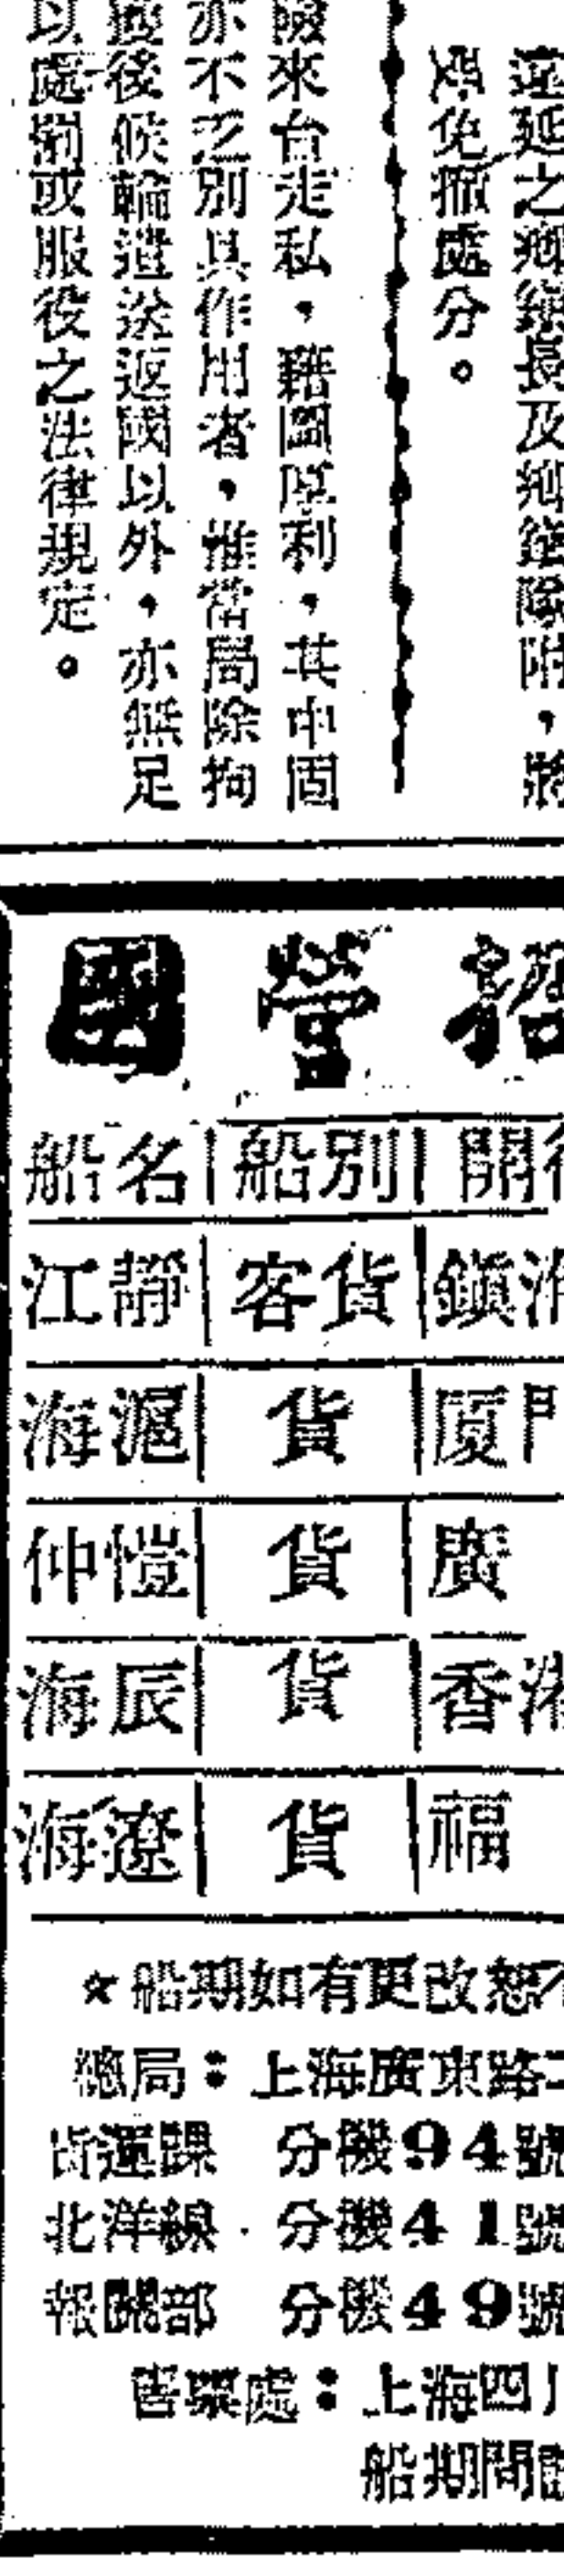 延之鄉鎮長及鄉鎮隊附，將
免撤處分。
險來台走私，藉圖厚利，其中固
亦不乏別具作用者，惟當局除拘
獲後候輪遣送返國以外，亦無足
以處罰或服役之法律規定。
國營招
船名 船別 開往
江靜 客貨 鎮海
海滬 貨 厦門
仲愷 貨 廣
海辰 貨 香港
海遼 貨 福
★船期如有更改恕不
總局：上海廣東路二
貨運課 分機94號
北洋線 分機41號
報關部 分機49號
售票處：上海四川
船期問